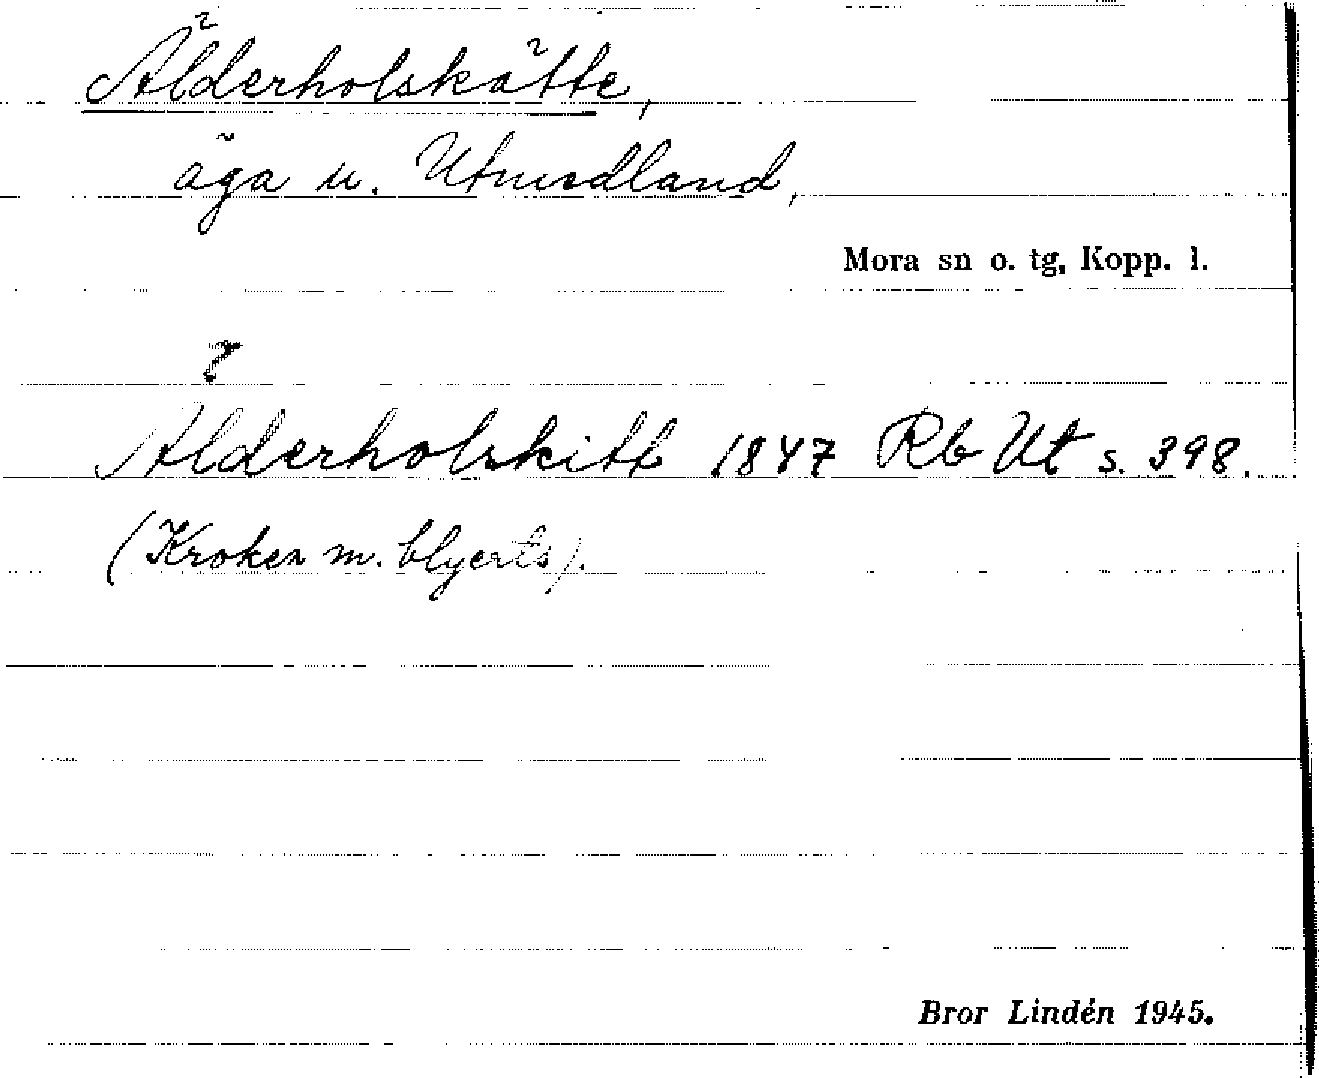 Älderholskätte,
äga u. Utmedland,
Mora sn o. tg, Kopp. l.
Älderholskitt 1847 Rb Ut s. 398.
(Kroken m. blyerts).
Bror Lindén 1945.